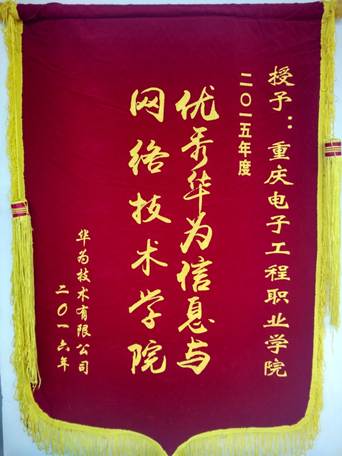 授予：重庆电子工程职业学院
二〇一五年度
优秀华为信息与
网络技术学院
华为技术有限公司
二〇一六年